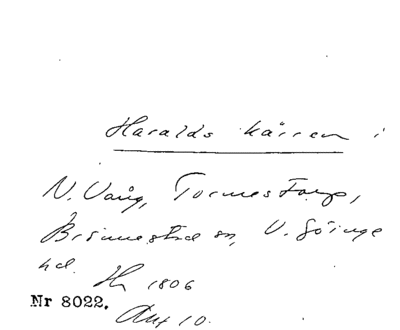 Haralds kärren i
N. Vång, Tormestorp,
Brönnestad sn, V. Göinge
hd.
1806
Nr 8022.
Akt 10.